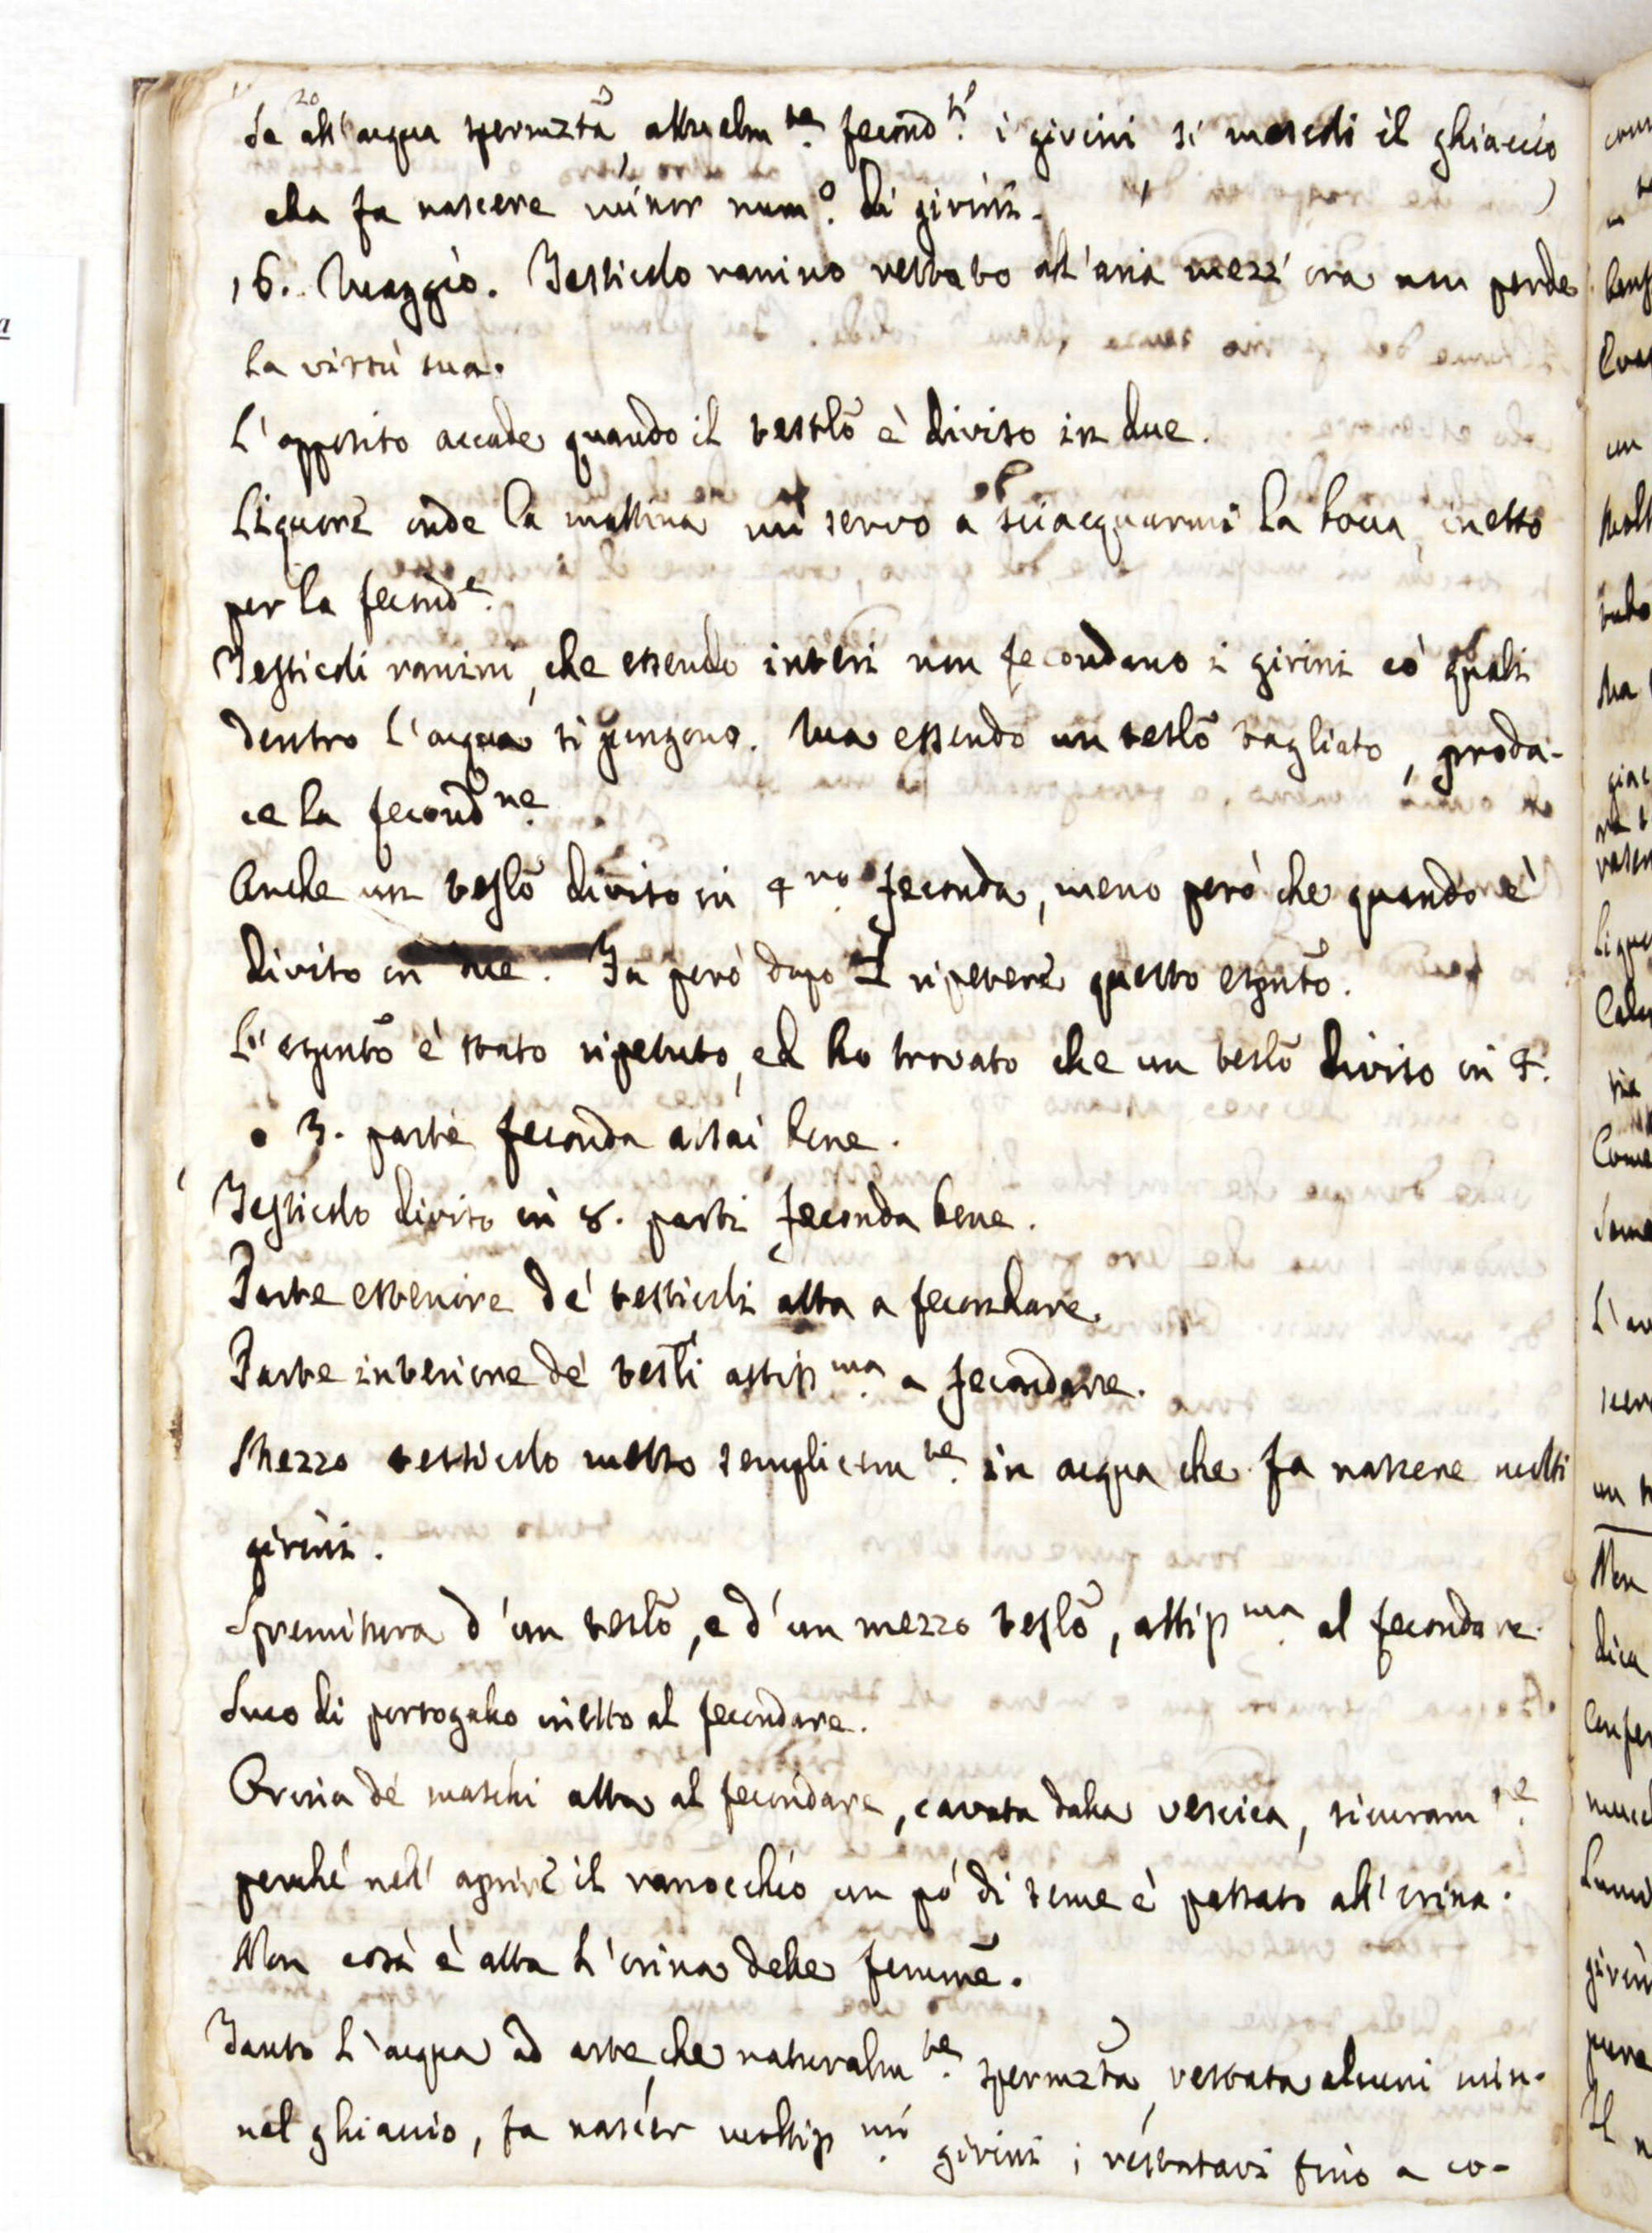 Se all'acqua spermzta, attualmte. fecondti. i girini si mescoli il ghiaccio
ella fa nascere minor numo. di girini.
16. Maggio. Testicolo ranino restato all'aria mezz'ora non perde
la virtù sua.
L'opposito accade quando il testlo è diviso in due.
Liquore onde la mattina mi servo a sciacquarmi la bocca, inetto
per la feconde.
Testicoli ranini, che essendo interi non fecondano i girini co' quali
dentro l'acqua si pongono. Ma essendo un testlo tagliato, produ-
ce la fecondne.
Anche un testlo diviso in 4ro. feconda, meno però che quando è
diviso in due. Fa però dopo ripetere questo espnto.
L'espnto è stato ripetuto, ed ho trovato che un testlo diviso in 4.
o 3. parte feconda assai bene.
Testicolo diviso in 8. parti feconda bene.
Parte esteriore de' testicoli atta a fecondare.
Parte interiore de' testli attisma. a fecondare.
Mezzo testicolo messo semplicemte. in acqua che fa nascere molti
girini.
Spremitura d'un testlo, e d'un mezzo testlo, attisma. al fecondare.
Suco di portogallo inetto al fecondare.
Orina de' maschi atta al fecondare, cavata dalla vescica, sicuramte.
perché nell'aprire il ranocchio un pó di seme è passato all'orina.
Non così è atta l'orina delle femme.
Tanto l'acqua ad arte, che naturalmte. spermzta, restata alcuni min.
nel ghiaccio, fa nascer moltismi. girini; restatavi fino a co-